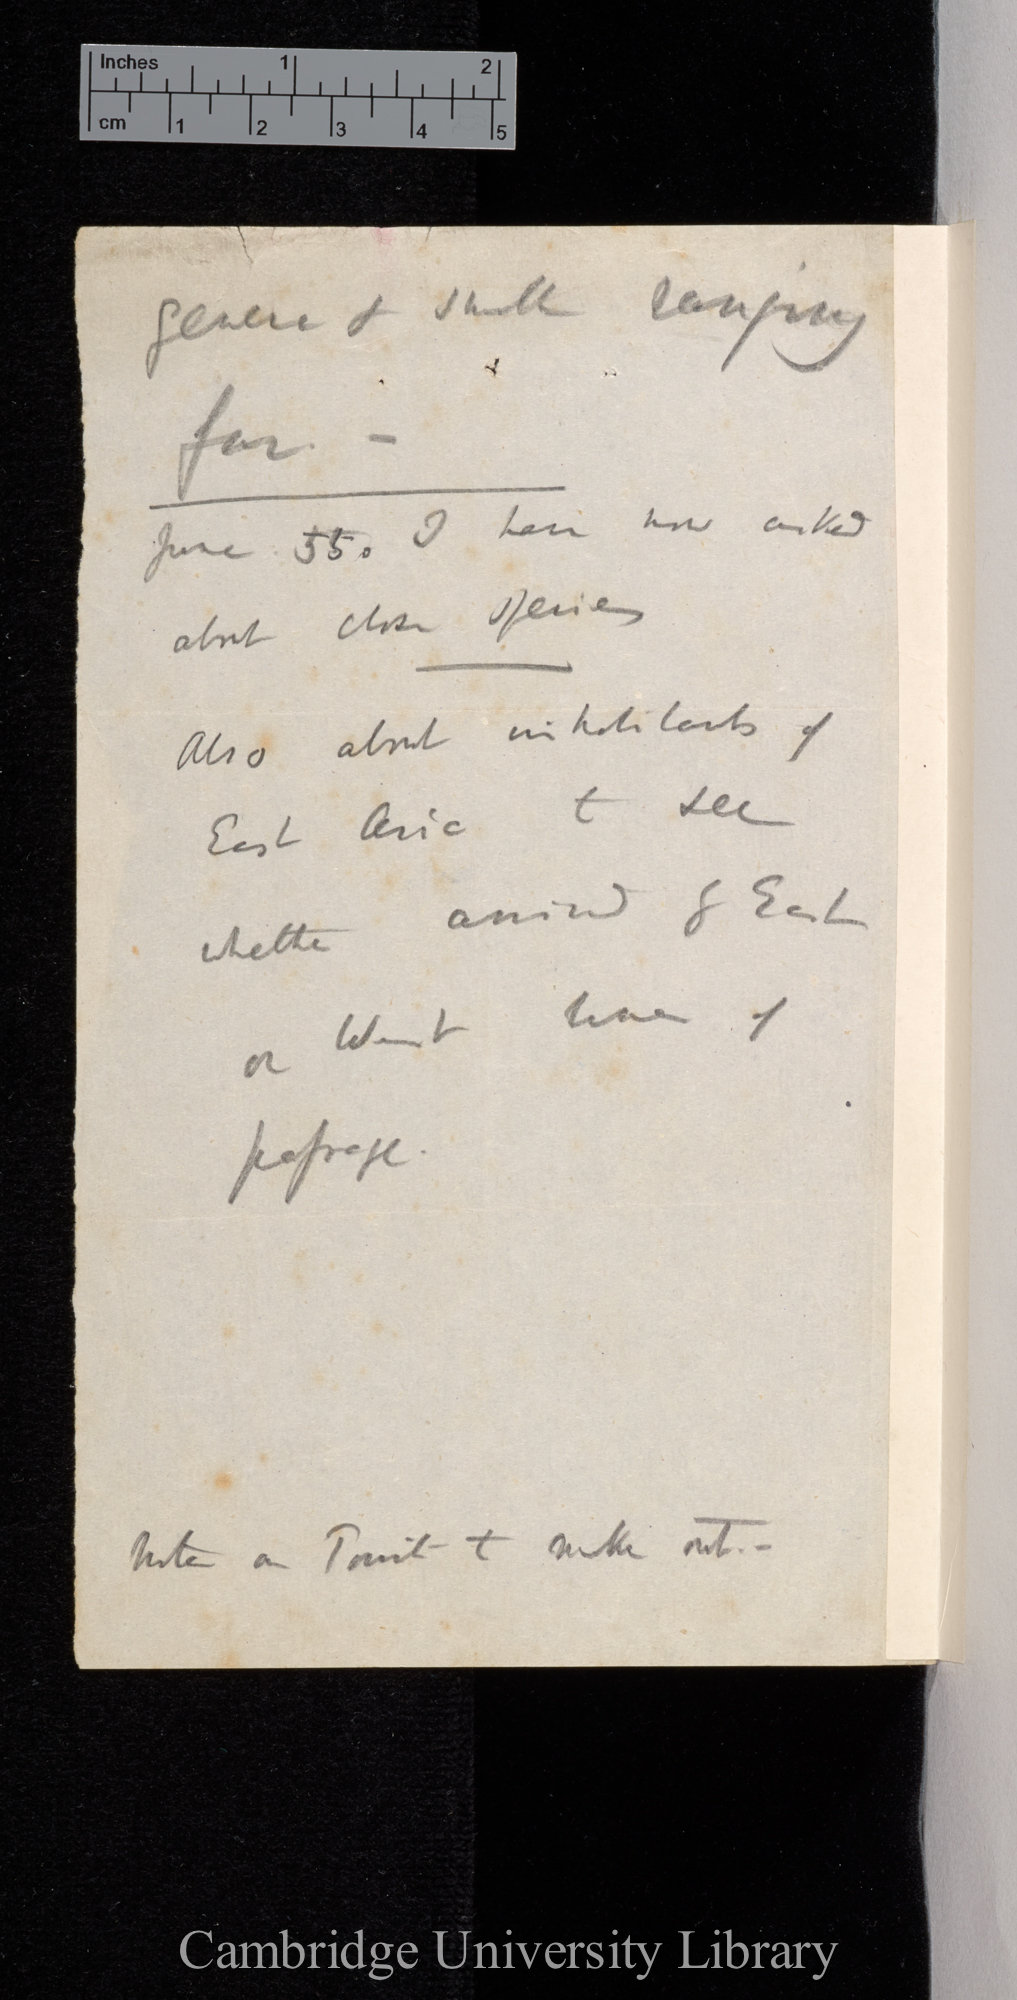 Inches 1 2
cm 1 2 3 4 5
genera & small ranging
far. —
June 55. I have now asked
about close species
Also about inhabitants of
East Asia to see
whether
or West
passage.
Notes on to make out.—
Cambridge University Library